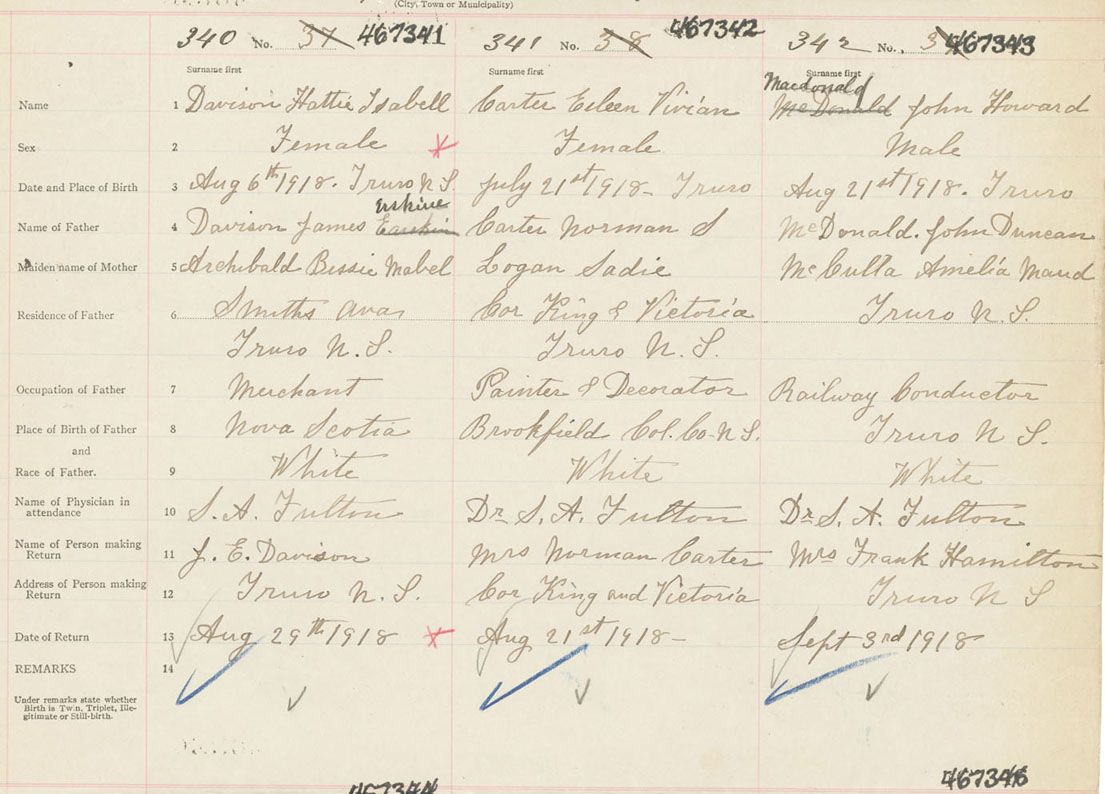 (City, Town or Municipality)
340 No. 37 467341 341 No. 38 467342 342 No. 467343
Surname first Surname first Surname first
Macdonald
Name 1 Davison Hattie Isabell Carter Eileen Vivian McDonald John Howard
Sex 2 Female Female Male
Date and Place of Birth 3 Aug 6th 1918. Truro N S. July 21st 1918 - Truro Aug 21st 1918. Truro
Erskine
Name of Father 4 Davison James Carter Norman S McDonald. John Duncan
Maiden name of Mother 5 Archibald Bessie Mabel Logan Sadie McCulla Amelia Maud
Residence of Father 6 Smiths Ave Cor King & Victoria Truro N. S.
Truro N. S. Truro N. S.
Occupation of Father 7 Merchant Painter & Decorator Railway Conductor
Place of Birth of Father 8 Nova Scotia Brookfield Col. Co. N S. Truro N S.
and
Race of Father. 9 White White White
Name of Physician in
attendance 10 S. A. Fulton Dr S. A. Fulton Dr S. A. Fulton
Name of Person making
Return 11 J. E. Davison Mrs Norman Carter Mrs Frank Hamilton
Address of Person making
Return 12 Truro N. S. Cor King and Victoria Truro N S
Date of Return 13 Aug 29th 1918 Aug 21st 1918 - Sept 3rd 1918
REMARKS 14
Under remarks state whether
Birth is Twin, Triplet, Ille-
gitimate or Still-birth.
467344 467346